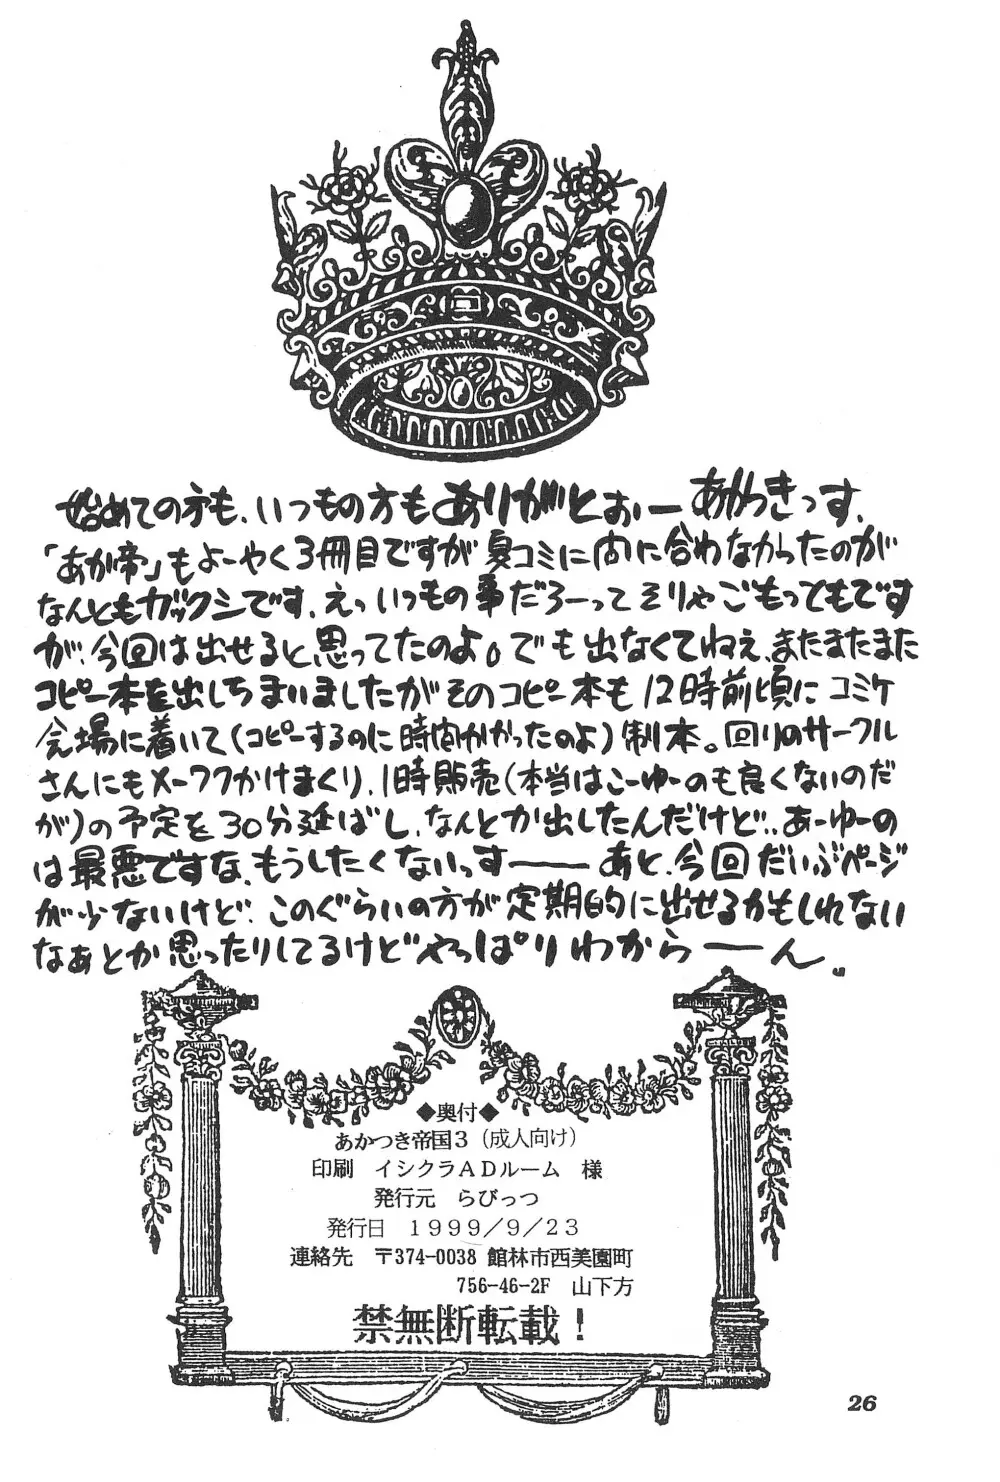 始めての方も、いつもの方もありがとぉー あかつきっす、
「あか帝」もよーやく3冊目ですが 夏コミに間に合わなかったのが
なんともガックシです、えっいつもの事だろーってそりゃごもっともです
が、今回は出せると思ってたのよ。でも出なくてねぇ、またまたまた
コピー本を出しちまいましたがそのコピー本も12時前頃にコミケ
会場に着いて(コピーするのに時間かかったのよ)制本。回りのサークル
さんにもメーワクかけまくり、1時販売(本当はこーゆーのも良くないのだ
が)の予定を30分延ばし、なんとか出したんだけど、あーゆーの
は最悪ですな、もうしたくないっすーー あと、今回だいぶページ
が少ないけど、このぐらいの方が定期的に出せるかもしれない
なぁとか思ったりしてるけどやっぱりわからーーん。
◆奥付◆
あかつき帝国3(成人向け)
印刷 イシクラADルーム 様
発行元 らびっつ
発行日 1999/9/23
連絡先 〒374-0038 館林市西美園町
756-46-2F 山下方
禁無断転載!
26